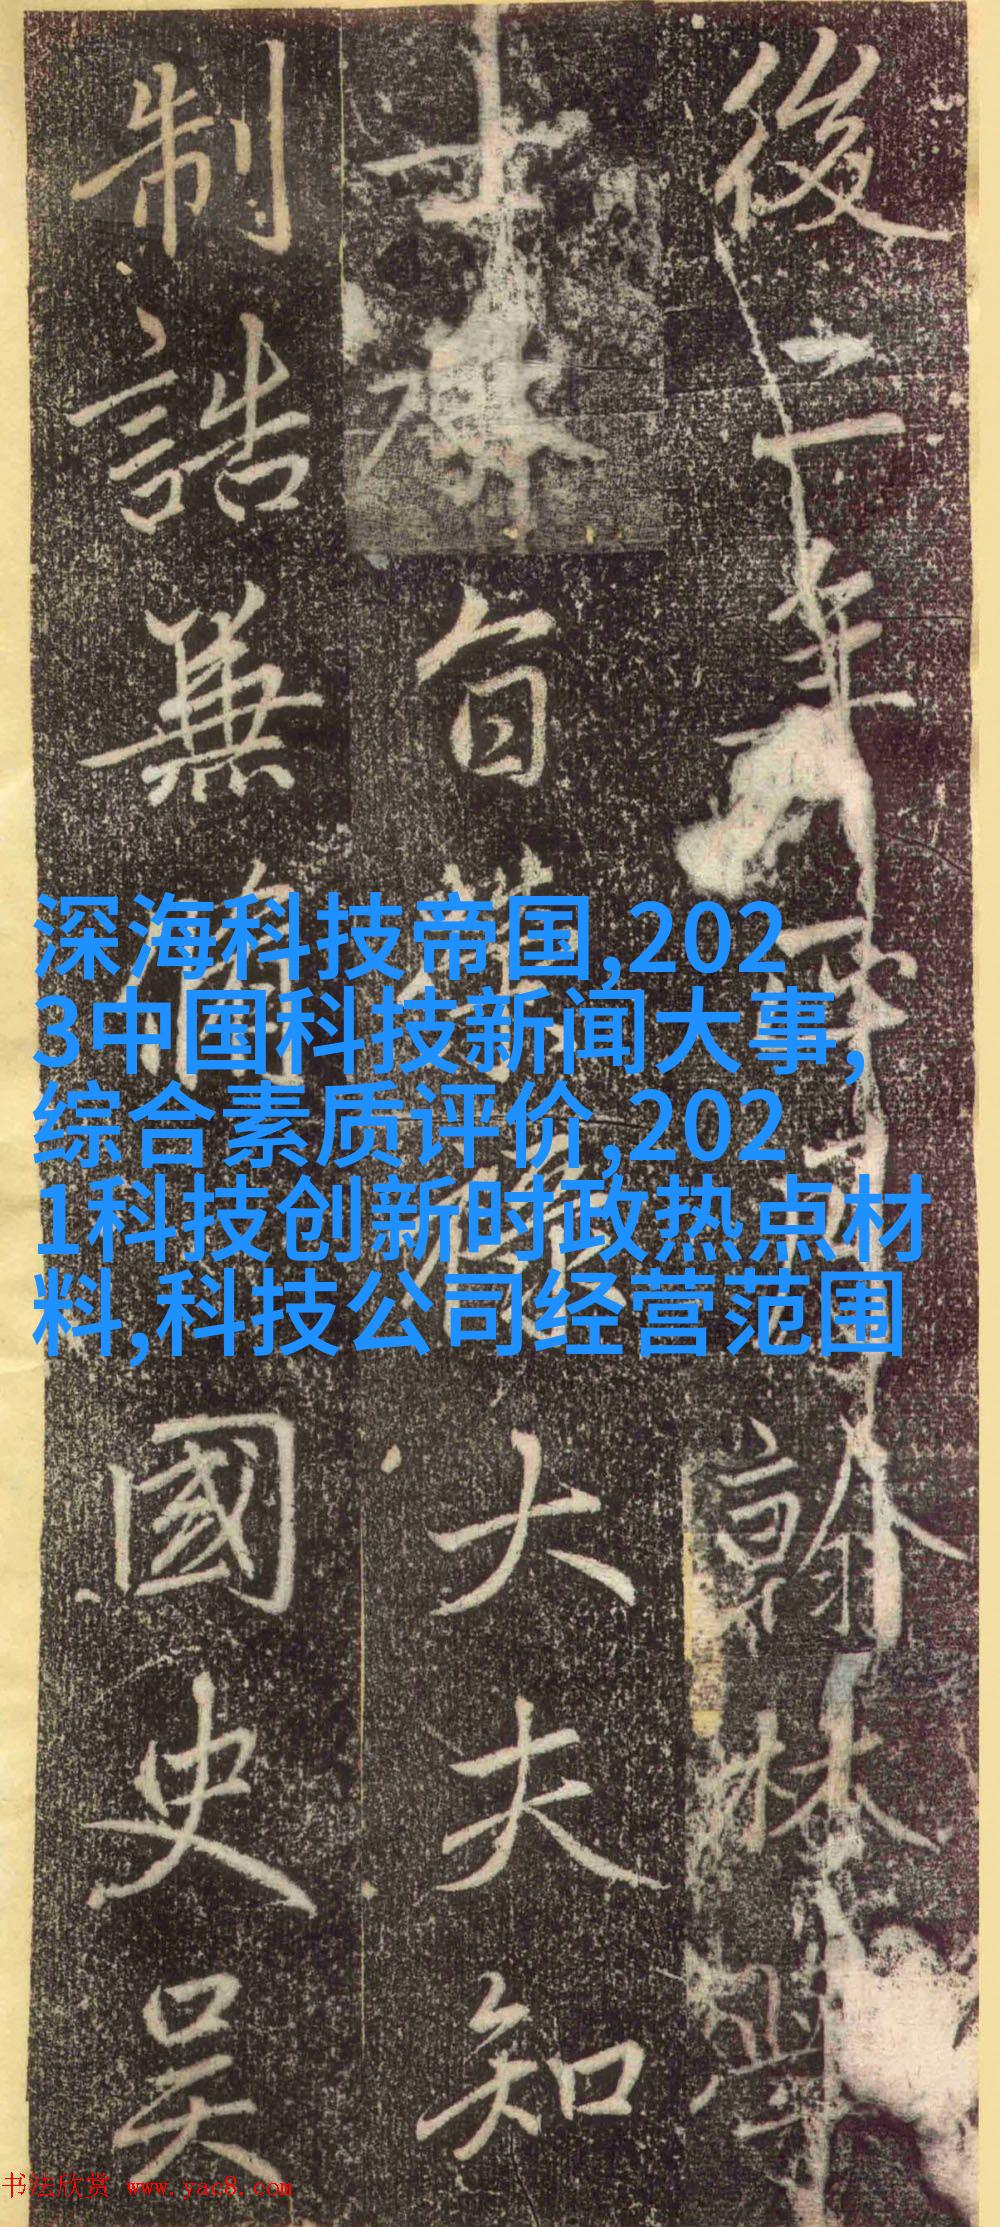 後二年翰林學
士旨大夫知
制誥兼脩國史吴
深海科技帝国,202
3中国科技新闻大事,
综合素质评价,202
1科技创新时政热点材
料,科技公司经营范围
书法欣赏 www.yac8.com